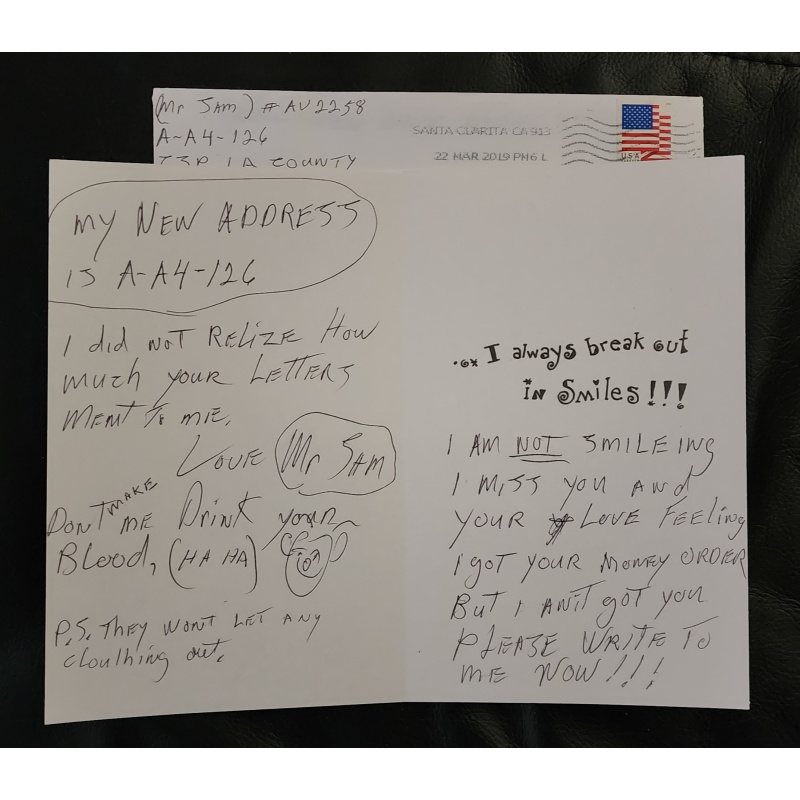 (Mr SAM) # AV2258
A-A4-126
LA COUNTY
SANTA CLARITA CA 913
22 MAR 2019 PM 6 L
USA
MY NEW ADDRESS
IS A-A4-126
I did NOT RELIZE HOW
much your LETTERS
MENT To ME.
LOVE Mr SAM
DON'T MAKE ME Drink your
Blood, (HA HA)
P.S. THEY WON'T LET ANY
clouthing out.
... I always break out
in Smiles!!!
I AM NOT SMILEING
I MISS YOU AND
YOUR LOVE FEELING
I got YOUR MONEY ORDER
BUT I AN'T got YOU
PLEASE WRITE TO
ME NOW!!!